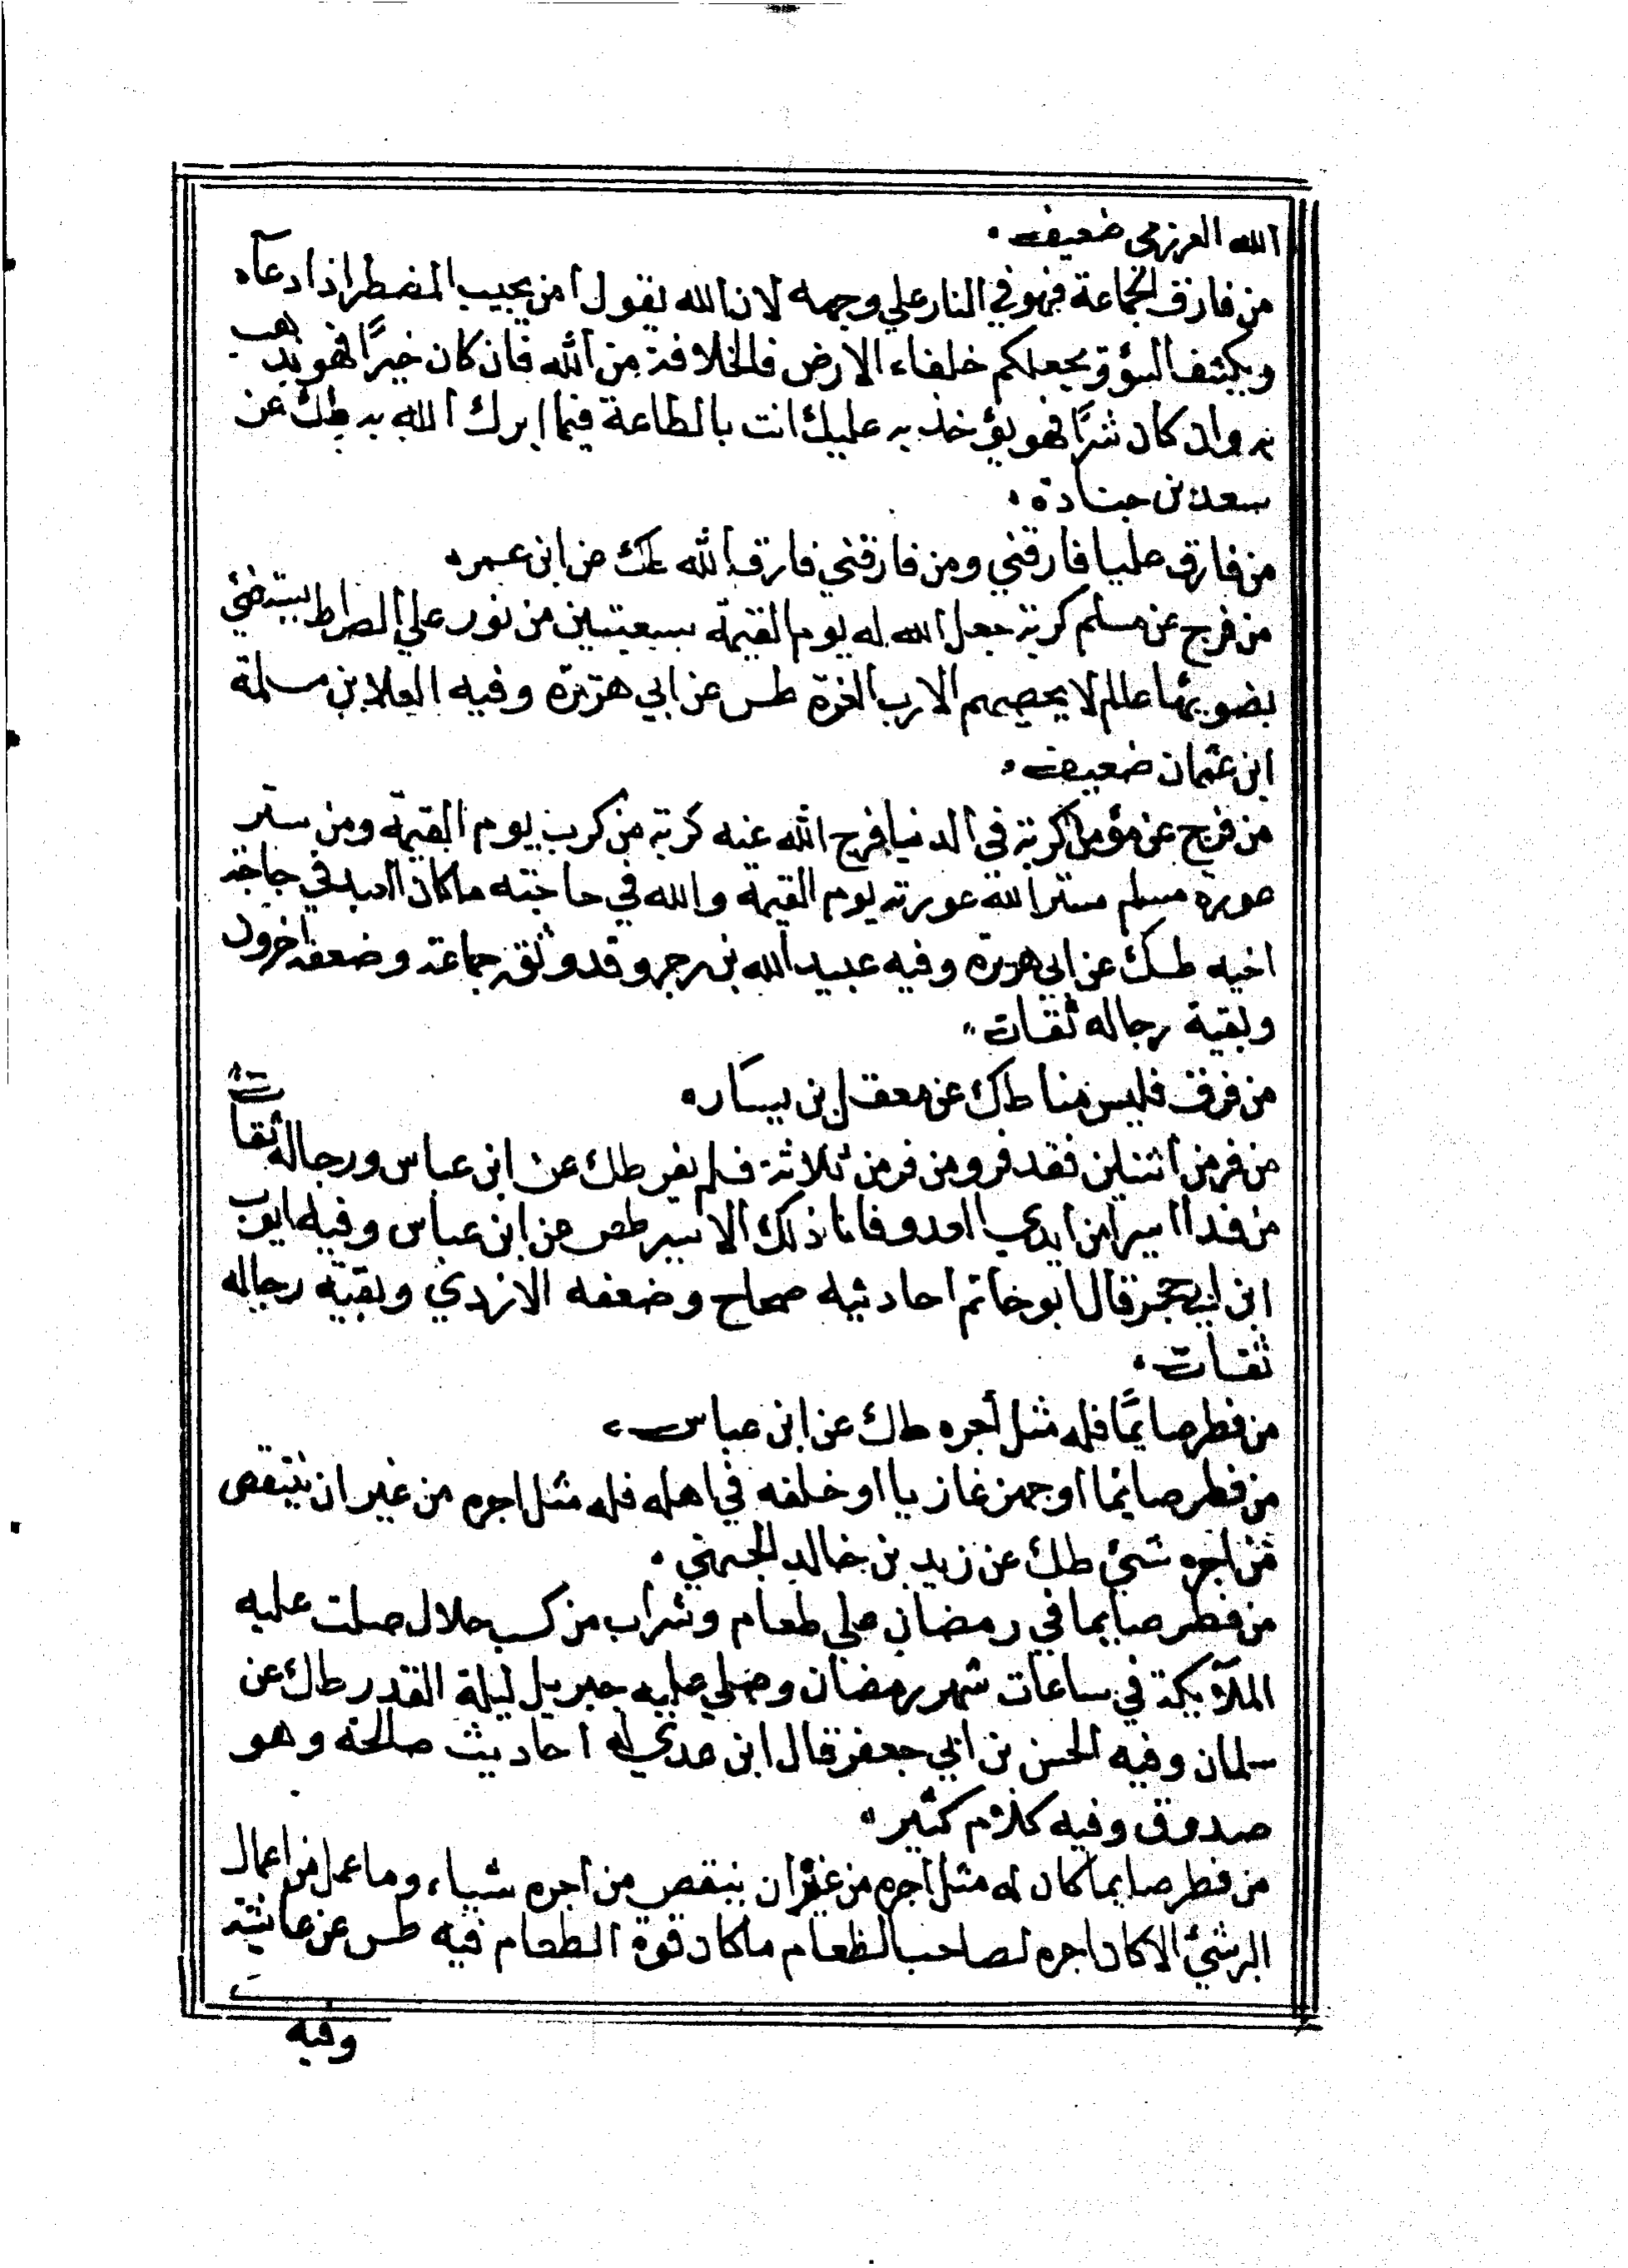 الله العرزمى ضعيف .
من فارق الجماعة فهو في النار علي وجهه لان الله يقول امن يجيب المضطر اذا دعاه
ويكشف السؤ ويجعلكم خلفاء الارض فالخلافة من الله فان كان خيرًا فهو يذهب
به وان كان شرًا فهو يؤخذ به عليك انت بالطاعة فيما امرك الله به طك عن
سعد بن جنادة .
من فارق عليا فارقني ومن فارقني فارق الله طك عن ابن عمر .
من فرج عن مسلم كربة جعل الله له يوم القيمة سبعتين من نور علي الصراط يستضئ
بضويهما عالم لا يحصيهم الا رب العزة طس عن ابي هريرة وفيه العلا بن مسلمة
ابن عثمان ضعيف .
من فرج عن مؤمن كربة في الدنيا فرج الله عنه كربة من كرب يوم القيمة ومن ستر
عورة مسلم ستر الله عورته يوم القيمة والله في حاجته ماكان العبد في حاجة
اخيه طك عن ابي هريرة وفيه عبيد الله بن زحر وقد وثقه جماعة وضعفه اخرون
وبقية رجاله ثقات "
من فرق فليس منا طك عن معقل بن يسار .
من فر من اثنين فقد فر ومن فر من ثلاثة فلم يفر طك عن ابن عباس ورجاله ثقات
من فدا اسيرا من ايدي العدو فانا ذلك الاسير طص عن ابن عباس وفيه ايوب
ابن ابي حجر قال ابو حاتم احاديثه صحاح وضعفه الازدي وبقية رجاله
ثقات .
من فطر صايمًا فله مثل أجره طك عن ابن عباس .
من فطر صايما او جهز غازيا او خلفه في اهله فله مثل اجره من غير ان ينتقص
من اجره شئ طك عن زيد بن خالد الجهني .
من فطر صايما في رمضان علي طعام وشراب من كسب حلال صلت عليه
الملآيكة في ساعات شهر رمضان وصلي عليه جبريل ليلة القدر طك عن
سلمان وفيه الحسن بن ابي جعفر قال ابن عدي له احاديث صالحة وهو
صدوق وفيه كلام كثير .
من فطر صايما كان له مثل اجره من غير ان ينقص من اجره شيياء وما عمل من اعمال
البر شئ الا كان اجره لصاحب الطعام ماكان قوة الطعام فيه طس عن عائشة
وفيه